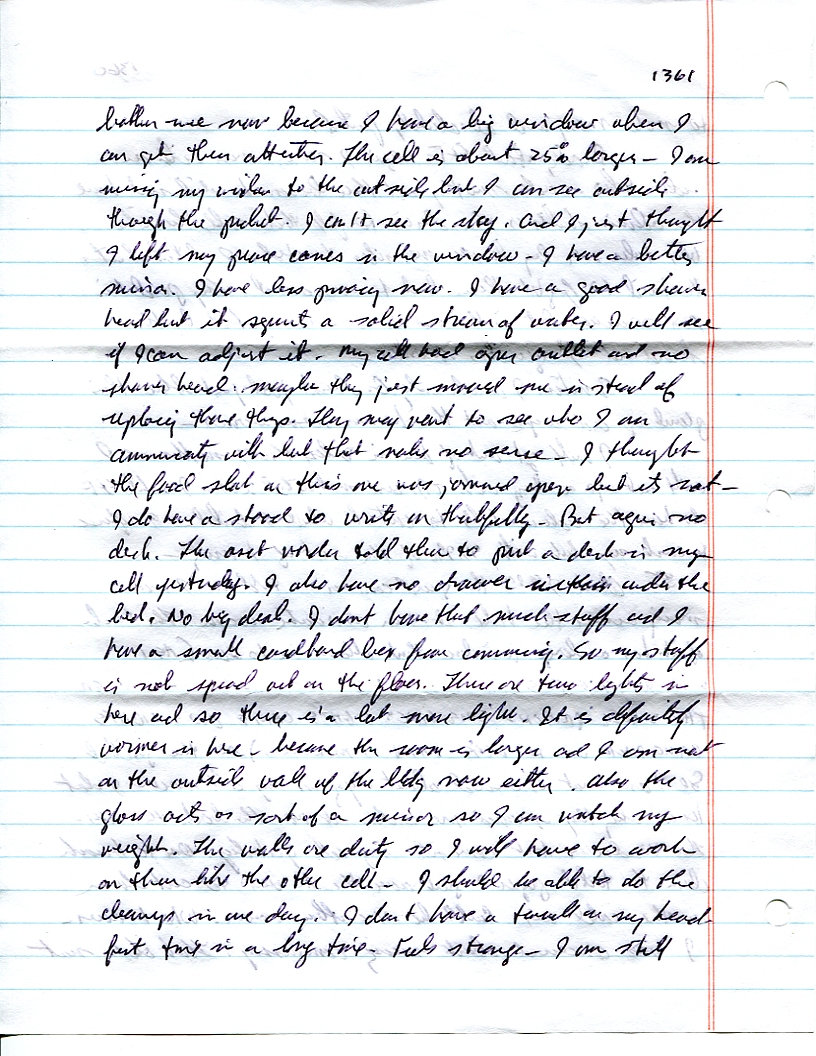 1361
bother me now because I have a big window when I
can get their attention. The cell is about 25% larger - I am
missing my window to the outside but I can see outside
through the . I can't see the sky. And I just thought
I left my canes in the window - I have a better
mirror. I have less privacy now. I have a good shower
head but it squirts a solid stream of water. I will see
if I can adjust it. My cell had open outlet and no
shower head. maybe they just moved me instead of
replacing those things. They may want to see who I am
communicating with but that makes no sense - I thought
the food slot on this one was jammed open but its not -
I do have a stool to write on thankfully - But again no
desk. The asst warden told them to put a desk in my
cell yesterday. I also have no drawer under the
bed. No big deal. I don't have that much stuff and I
have a small cardboard box from commissary. So my stuff
is not spread out on the floor. There are two lights in
here and so there is a lot more light. It is definitely
warmer in here - because the room is larger and I am not
on the outside wall of the bldg now either. Also the
glass acts as sort of a mirror so I can watch my
weight. The walls are dirty so I will have to work
on them like the other cell - I should be able to do the
cleanings in one day. I don't have a towell on my head
first time in a long time. Feels strange - I am still